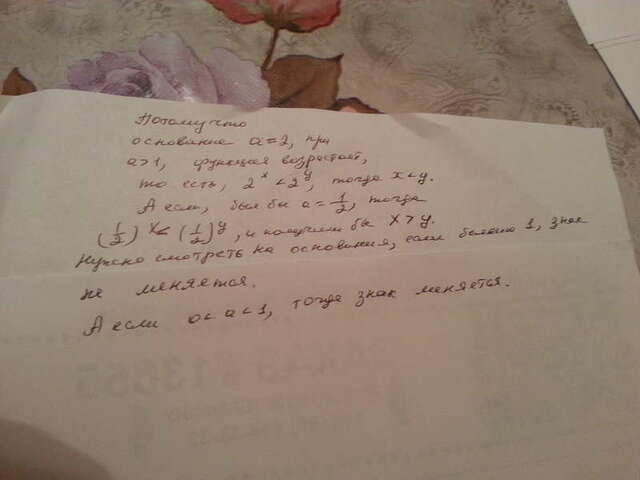 Потому что
основание a=2, при
a>1, функция возрастает,
то есть, 2^x < 2^y, тогда x<y.
А если, был бы a = 1/2, тогда
(1/2)^x < (1/2)^y, и получили бы x>y.
Нужно смотреть на основания, если больше 1, знак
не меняется.
А если 0<a<1, тогда знак меняется.